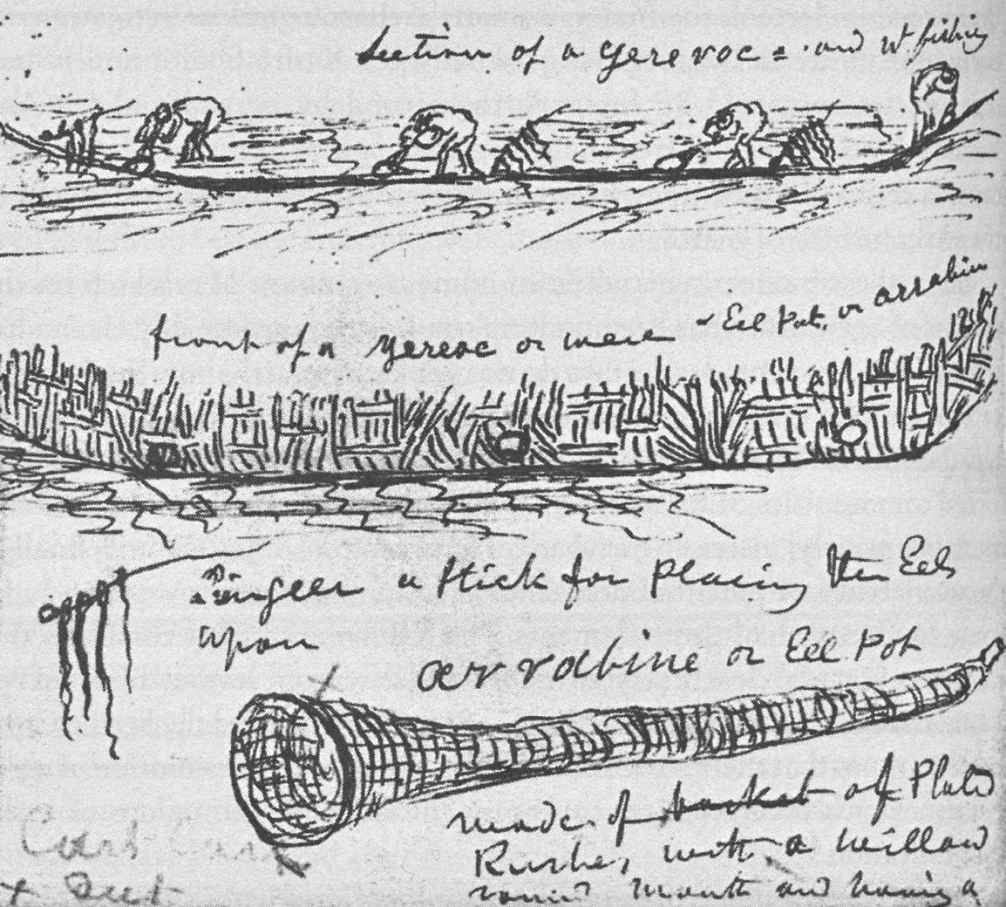 Section of a yerevoc = and Wt fishing
front of a yereoc or were - Eel Pot, or arrabin
Lingeer a stick for placing the Eels
upon
arrabine or Eel Pot
made of basket of Plato
Rushe, with a willow
round mouth and having a